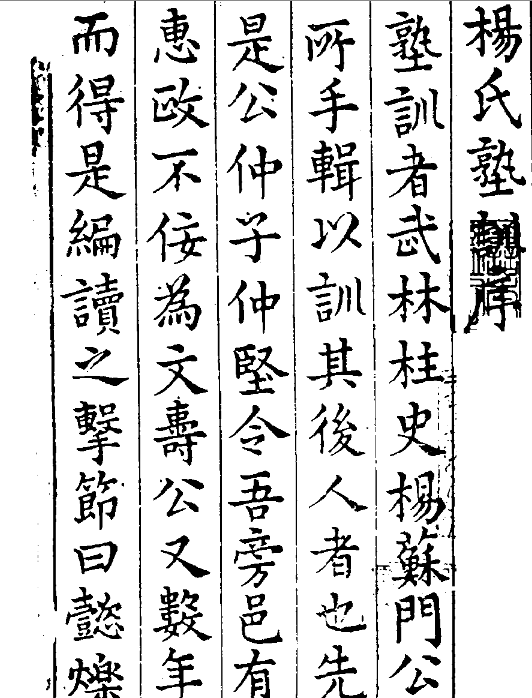 楊氏塾訓序
塾訓者武林柱史楊蘇門公
所手輯以訓其後人者也先
是公仲子仲堅令吾旁邑有
惠政不佞為文壽公又數年
而得是編讀之擊節曰懿爍